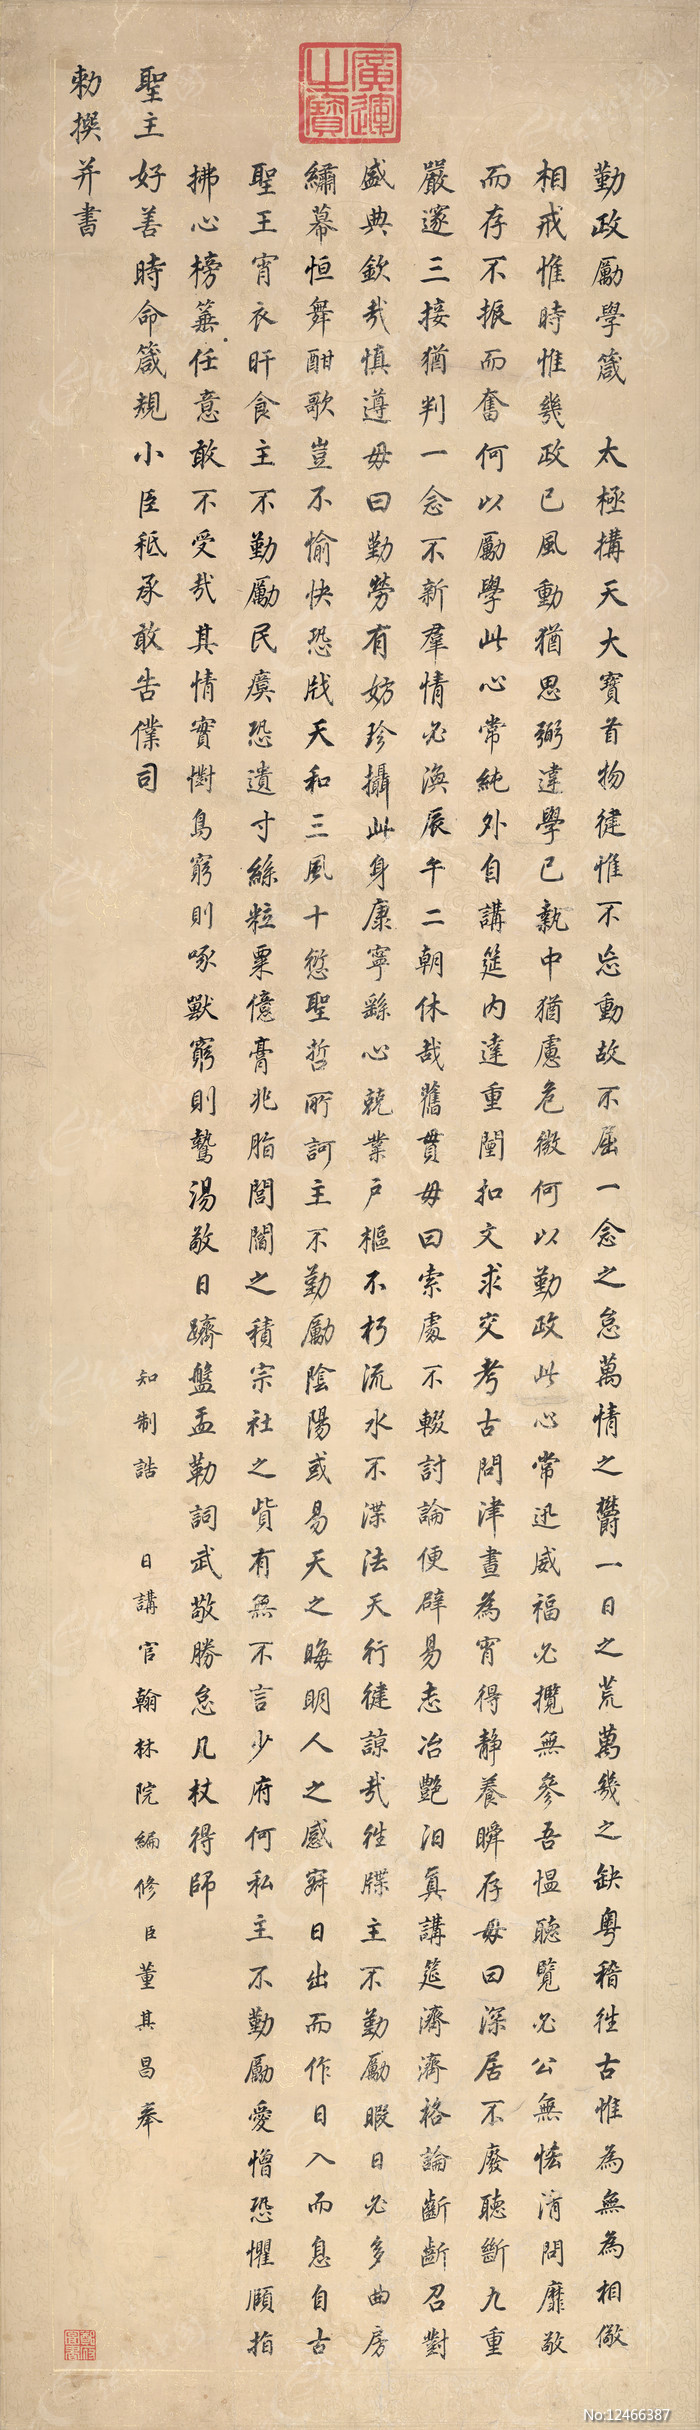 廣運之寶
勤政厲學箴 太極搆天大寶首物徤惟不忘動故不屈一念之怠萬情之欝一日之荒萬幾之缺粵稽徃古惟為無為相儆
相戒惟時惟幾政已風動猶思弼違學已執中猶慮危微何以勤政此心常迅威福必攬無參吾愠聽覽必公無恡淸問靡敢
而存不振而奮何以勵學此心常純外自講筵內達重闈扣文求交考古問津晝為宵得静養瞬存毋曰深居不廢聽斷九重
嚴邃三接猶判一念不新羣情必渙辰午二朝休哉舊貫毋曰索處不輟討論便辟易志冶艶汨真講筵濟濟格論齗齗召對
盛典欽哉慎遵毋曰勤勞有妨珍攝此身康寧繇心兢業戶樞不朽流水不渫法天行徤諒哉徃牒主不勤勵暇日必多曲房
繡幕恒舞酣歌豈不愉快恐戕天和三風十愆聖哲所訶主不勤勵陰陽或易天之晦明人之感寐日出而作日入而息自古
聖王宵衣旰食主不勤勵民瘼恐遺寸絲粒粟億膏兆脂閭閻之積宗社之貲有無不言少府何私主不勤勵愛憎恐懼頤指
拂心榜箠任意敢不受哉其情實懟鳥窮則啄獸窮則鷙湯敬日躋盤盂勒詞武敬勝怠几杖得師
聖主好善時命箴規小臣秪承敢告僕司 知制誥 日講官翰林院編修臣董其昌奉
勅撰并書
No:12466387